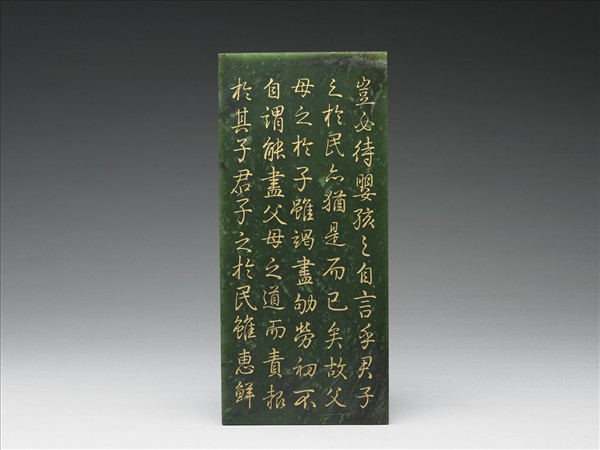 豈必待嬰孩之自言乎君子
之於民亦猶是而已矣故父
母之於子雖竭盡劬勞初不
自謂能盡父母之道而責報
於其子君子之於民雖恵鮮